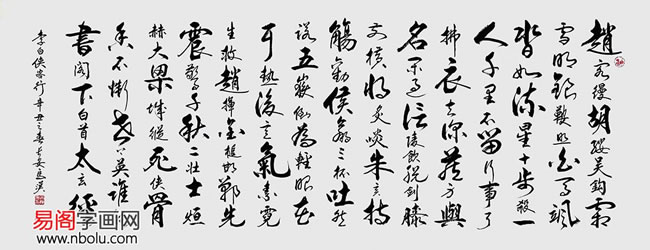 趙客縵胡纓吳鉤霜
雪明銀鞍照白馬颯
沓如流星十步殺一
人千里不留行事了
拂衣去深藏身與
名閑過信陵飲脫劍膝
前橫將炙啖朱亥持
觴勸侯嬴三杯吐然
諾五嶽倒為輕眼花
耳熱後意氣素霓
生救趙揮金槌邯鄲先
震驚千秋二壯士烜
赫大梁城縱死俠骨
香不慚世上英誰能
書閣下白首太玄經
李白俠客行辛丑之春長安
易阁字画网
www.nbolu.com